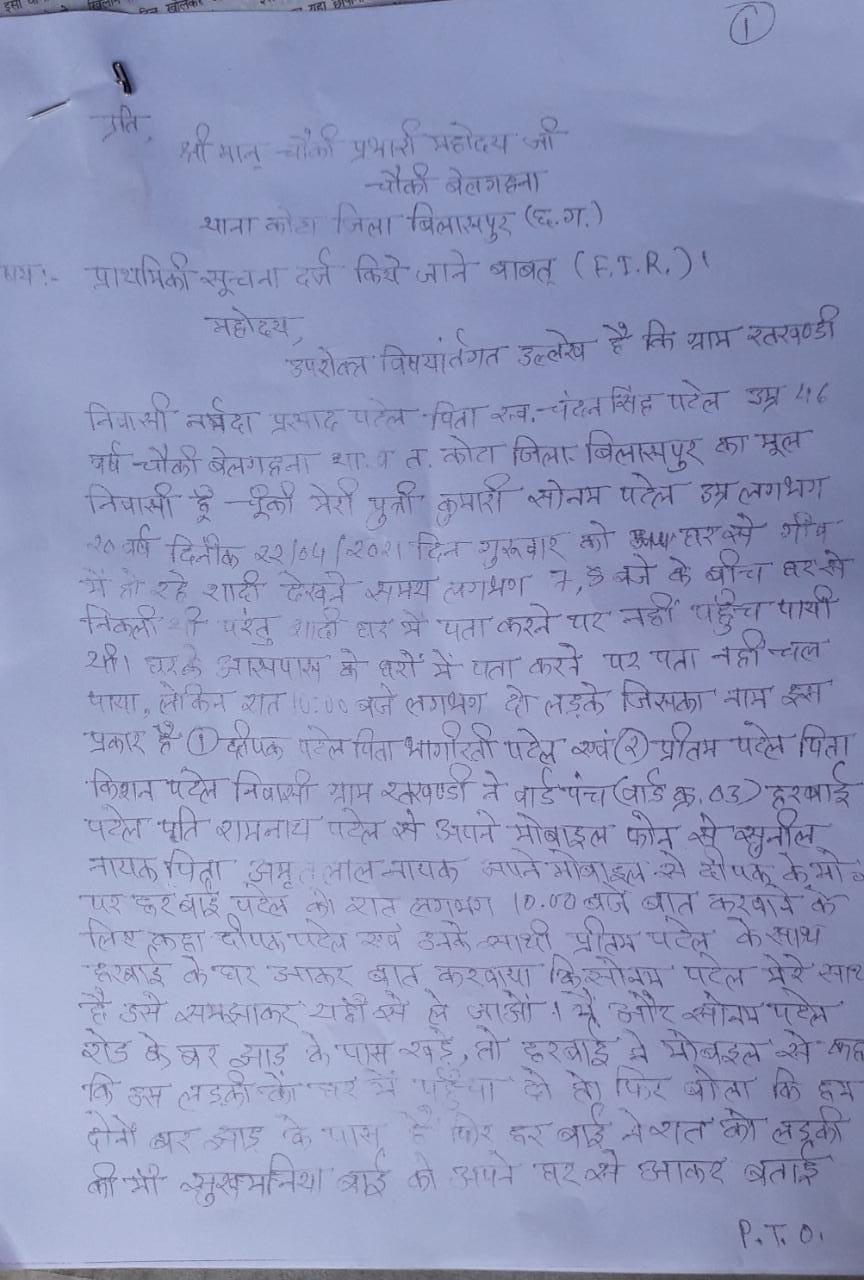 ①
प्रति,
श्री मान् चौकी प्रभारी महोदय जी
चौकी बेलगहना
थाना कोटा जिला बिलासपुर (छ.ग.)
षय:- प्राथमिकी सूचना दर्ज किये जाने बाबत् (F.I.R.)।
महोदय,
उपरोक्त विषयांर्तगत उल्लेख है कि ग्राम रतखण्डी
निवासी नर्मदा प्रसाद पटेल पिता स्व. चंदन सिंह पटेल उम्र 46
वर्ष चौकी बेलगहना था. व त. कोटा जिला बिलासपुर का मूल
निवासी हूँ चूंकी मेरी पुत्री कुमारी सोनम पटेल उम्र लगभग
20 वर्ष दिनांक 22/04/2021 दिन गुरूवार को घर से गाँव
में हो रहे शादी देखने समय लगभग 7, 8 बजे के बीच घर से
निकली थी परंतु शादी घर में पता करने पर नहीं पहुँच पायी
थी। घर के आसपास के घरों में पता करने पर पता नही चल
पाया, लेकिन रात 10:00 बजे लगभग दो लड़के जिसका नाम इस
प्रकार है ① दीपक पटेल पिता भागीरती पटेल एवं (2) प्रीतम पटेल पिता
किशन पटेल निवासी ग्राम रतखण्डी ने वार्ड पंच (वार्ड क्र. 03) हरबाई
पटेल पति रामनाथ पटेल से अपने मोबाइल फोन से सुनील
नायक पिता अमृत लाल नायक अपने मोबाइल से दीपक के मो
पर हरबाई पटेल को रात लगभग 10.00 बजे बात करवाने के
लिए कहा दीपक पटेल एवं उनके साथी प्रीतम पटेल के साथ
हरबाई के घर जाकर बात करवाया कि सोनम पटेल मेरे साथ
है उसे समझाकर यहाँ से ले जाओ। मैं और सोनम पटेल
रोड के बर झाड़ के पास खड़े, तो हरबाई ने मोबाइल से कहा
कि उस लड़की को घर में पहुँचा दो तो फिर बोला कि हम
दोनों बर झाड़ के पास है फिर हर बाई ने रात को लड़की
की माँ सुखमनिया बाई को अपने घर से आकर बताई
P.T.O.